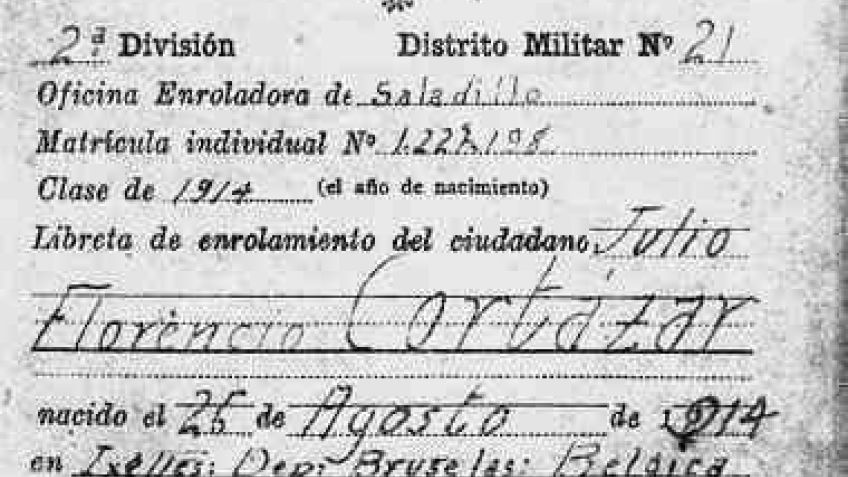 2ª División Distrito Militar Nº 21
Oficina Enroladora de Saladillo
Matrícula individual Nº 1.227.198
Clase de 1914 (el año de nacimiento)
Libreta de enrolamiento del ciudadano Julio
Florencio Cortázar
nacido el 26 de Agosto de 1914
en Ixelles: Dep: Bruselas: Belgica